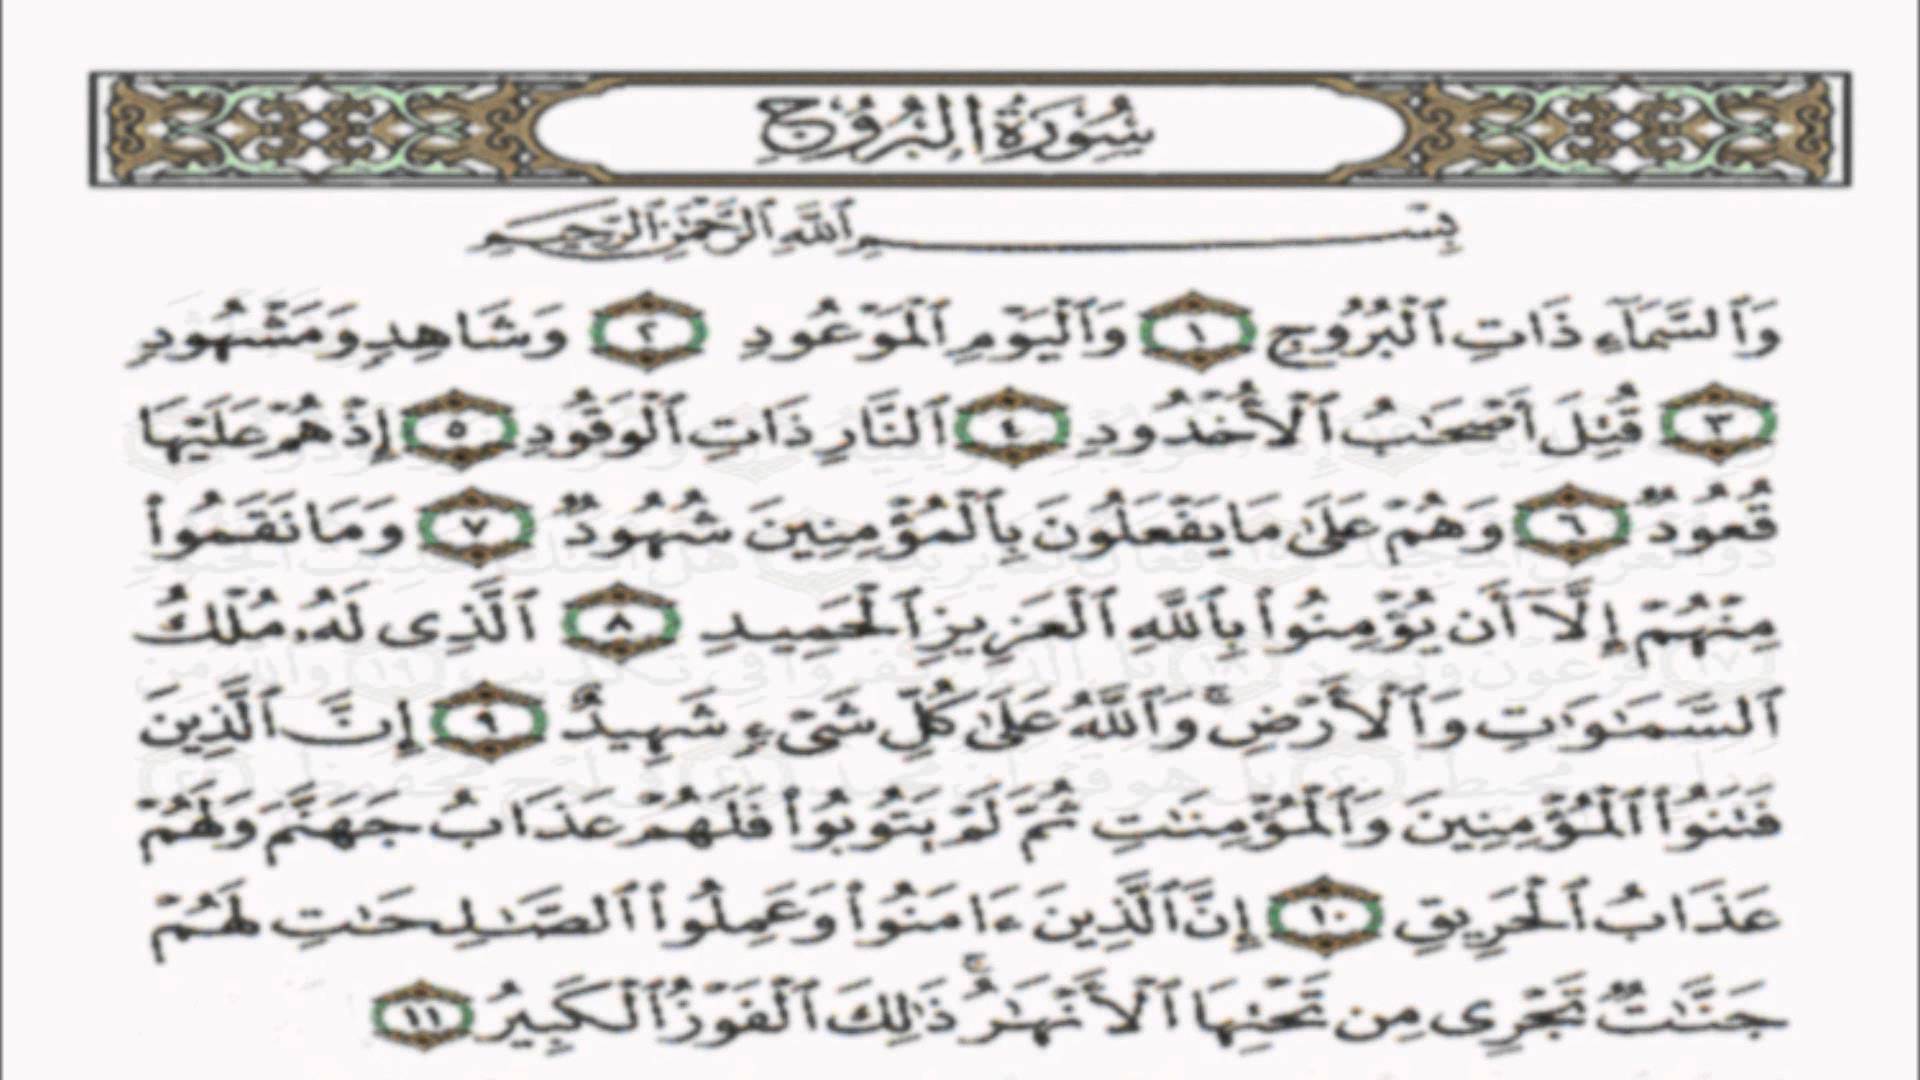 سُورَةُ البُرُوجِ
بِسْمِ ٱللَّهِ ٱلرَّحْمَٰنِ ٱلرَّحِيمِ
وَٱلسَّمَآءِ ذَاتِ ٱلْبُرُوجِ ١ وَٱلْيَوْمِ ٱلْمَوْعُودِ ٢ وَشَاهِدٍ وَمَشْهُودٍ
٣ قُتِلَ أَصْحَٰبُ ٱلْأُخْدُودِ ٤ ٱلنَّارِ ذَاتِ ٱلْوَقُودِ ٥ إِذْ هُمْ عَلَيْهَا
قُعُودٌ ٦ وَهُمْ عَلَىٰ مَا يَفْعَلُونَ بِٱلْمُؤْمِنِينَ شُهُودٌ ٧ وَمَا نَقَمُوا۟
مِنْهُمْ إِلَّآ أَن يُؤْمِنُوا۟ بِٱللَّهِ ٱلْعَزِيزِ ٱلْحَمِيدِ ٨ ٱلَّذِى لَهُۥ مُلْكُ
ٱلسَّمَٰوَٰتِ وَٱلْأَرْضِ ۚ وَٱللَّهُ عَلَىٰ كُلِّ شَىْءٍ شَهِيدٌ ٩ إِنَّ ٱلَّذِينَ
فَتَنُوا۟ ٱلْمُؤْمِنِينَ وَٱلْمُؤْمِنَٰتِ ثُمَّ لَمْ يَتُوبُوا۟ فَلَهُمْ عَذَابُ جَهَنَّمَ وَلَهُمْ
عَذَابُ ٱلْحَرِيقِ ١٠ إِنَّ ٱلَّذِينَ ءَامَنُوا۟ وَعَمِلُوا۟ ٱلصَّٰلِحَٰتِ لَهُمْ
جَنَّٰتٌ تَجْرِى مِن تَحْتِهَا ٱلْأَنْهَٰرُ ۚ ذَٰلِكَ ٱلْفَوْزُ ٱلْكَبِيرُ ١١